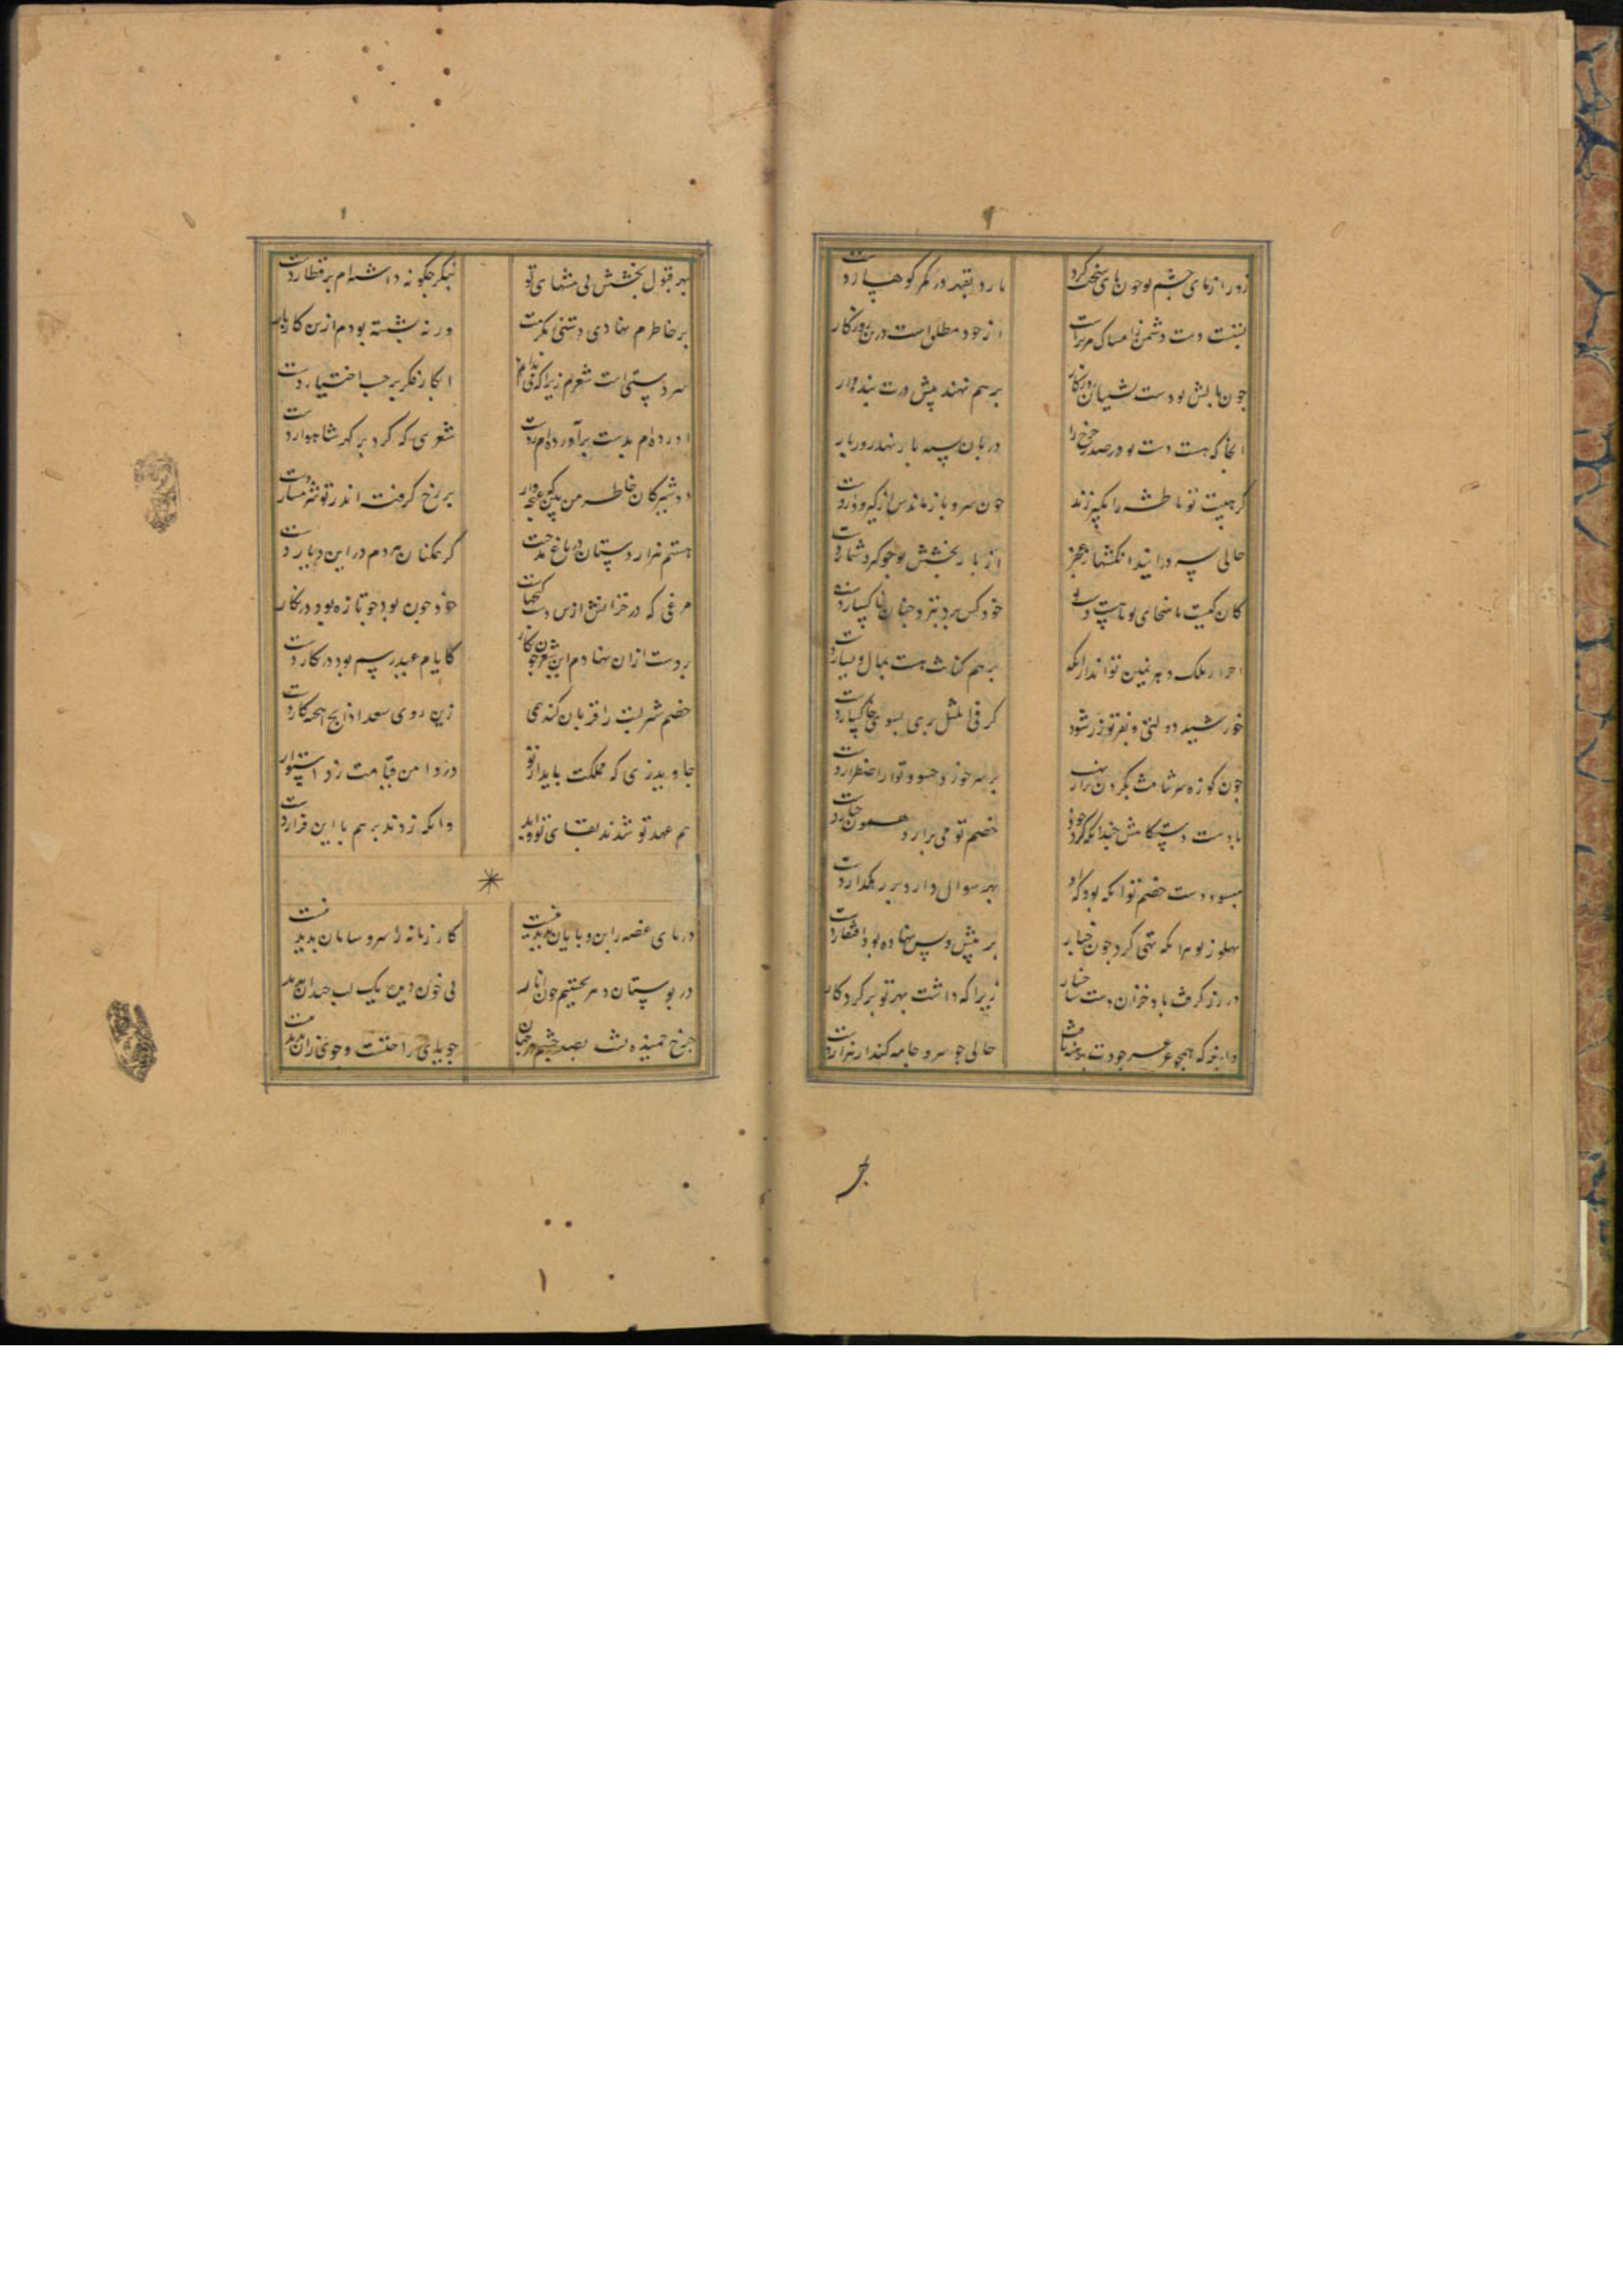 زور ازمای خشم تو چون پای سخت کرد
نارد بقهر در کمر کوهسار دست
ببست دست دشمن تو امساک مر تراست
از جود مطلق است درین روزگار
چون بالش تو دست نشینان روزگار
بر هم نهند پیش درت بنده وار
انجا که هست دست تو در صدر چرخ را
دربان سیه بار نهد روز بار
گر هیبت تو با طشه را بگیر زند
چون سرو باز ماندش از گیر و دار دست
حالی سپر در ایند انگشتها ز عجز
از بار بخشش تو چو گیرد شمار دست
کان کیست با سخای تو تا هست دست تو
خود کس برد بنزد چنان خاکسار دست
احرار ملک دهر نمین تواند از انکه
بر هم کنانت هست بمال و یسار دست
خورشید دولتی و بفر تو زر شود
گر فی المثل بری بسوی خاکسار دست
چون کوزه سر شامت بگردن براد
بر سر چو زد حسود تو از اضطرار دست
با دست دستکاهش چندانکه کرد جود
خصم تو می برارد همچون چنار دست
حسود دست خصم تو انکه بود که او
بهر سوال دارد بر رهگذار دست
پهلو ز تو هر انکه تهی کرد چون خیار
بر پیش و پس نهاده بود ز افتقار دست
در رز گرفت باد خزان دست شاخسار
زیرا که داشت بهر تو بر گرد کار
وانرا که همچو غنچه جودت برهنه یافت
حالی چو سرو جامه کند از هزار دست
جر
بهر قبول بخشش بی منتهای تو
بنگر چگونه داشته ام بر قطار دست
بر خاطرم نهادی دستی بمکرمت
ورنه بشسته بودم ازین کار و بار
سر دستی است شعرم زیرا که فی ندارم
انکار فکر بر حسب اختیار دست
اورده ام بدست برآورده ام ز دست
شعری که کرد بر گهر شاهوار دست
دوشیزگان خاطر من بکین غنچه وار
بر رخ گرفته اند ز تو شرمسار دست
هستم هزار دستان در باغ مدحتت
گر همکنان مردم در این دیار دست
مرغی که در خزانش ازین دست لحنهاست
خود چون بود چو تازه بود در بهار
بر دست ازان نهادم این شعر چون نگار
کایام عید رسم بود در نگار دست
خصم شریت را قربان کند همی
زین روی سعد ذابح اهیخته کارد دست
جاوید زی که مملکت پایدار تو
در دامن قیامت زد استوار
هم عهد تو شدند بقای تو و ابد
وانگه زدند بر هم با این قرار دست
دریای غصه را بن و پایان پدید نیست
کار زمانه را سر و سامان پدید نیست
در بوستان دهر بجستیم چون انار
بی خون دین یک لب خندان پدید
چرخ خمیده پشت بصد چشم در جهان
جویای راحتست و جوی زان پدید نیست
۱